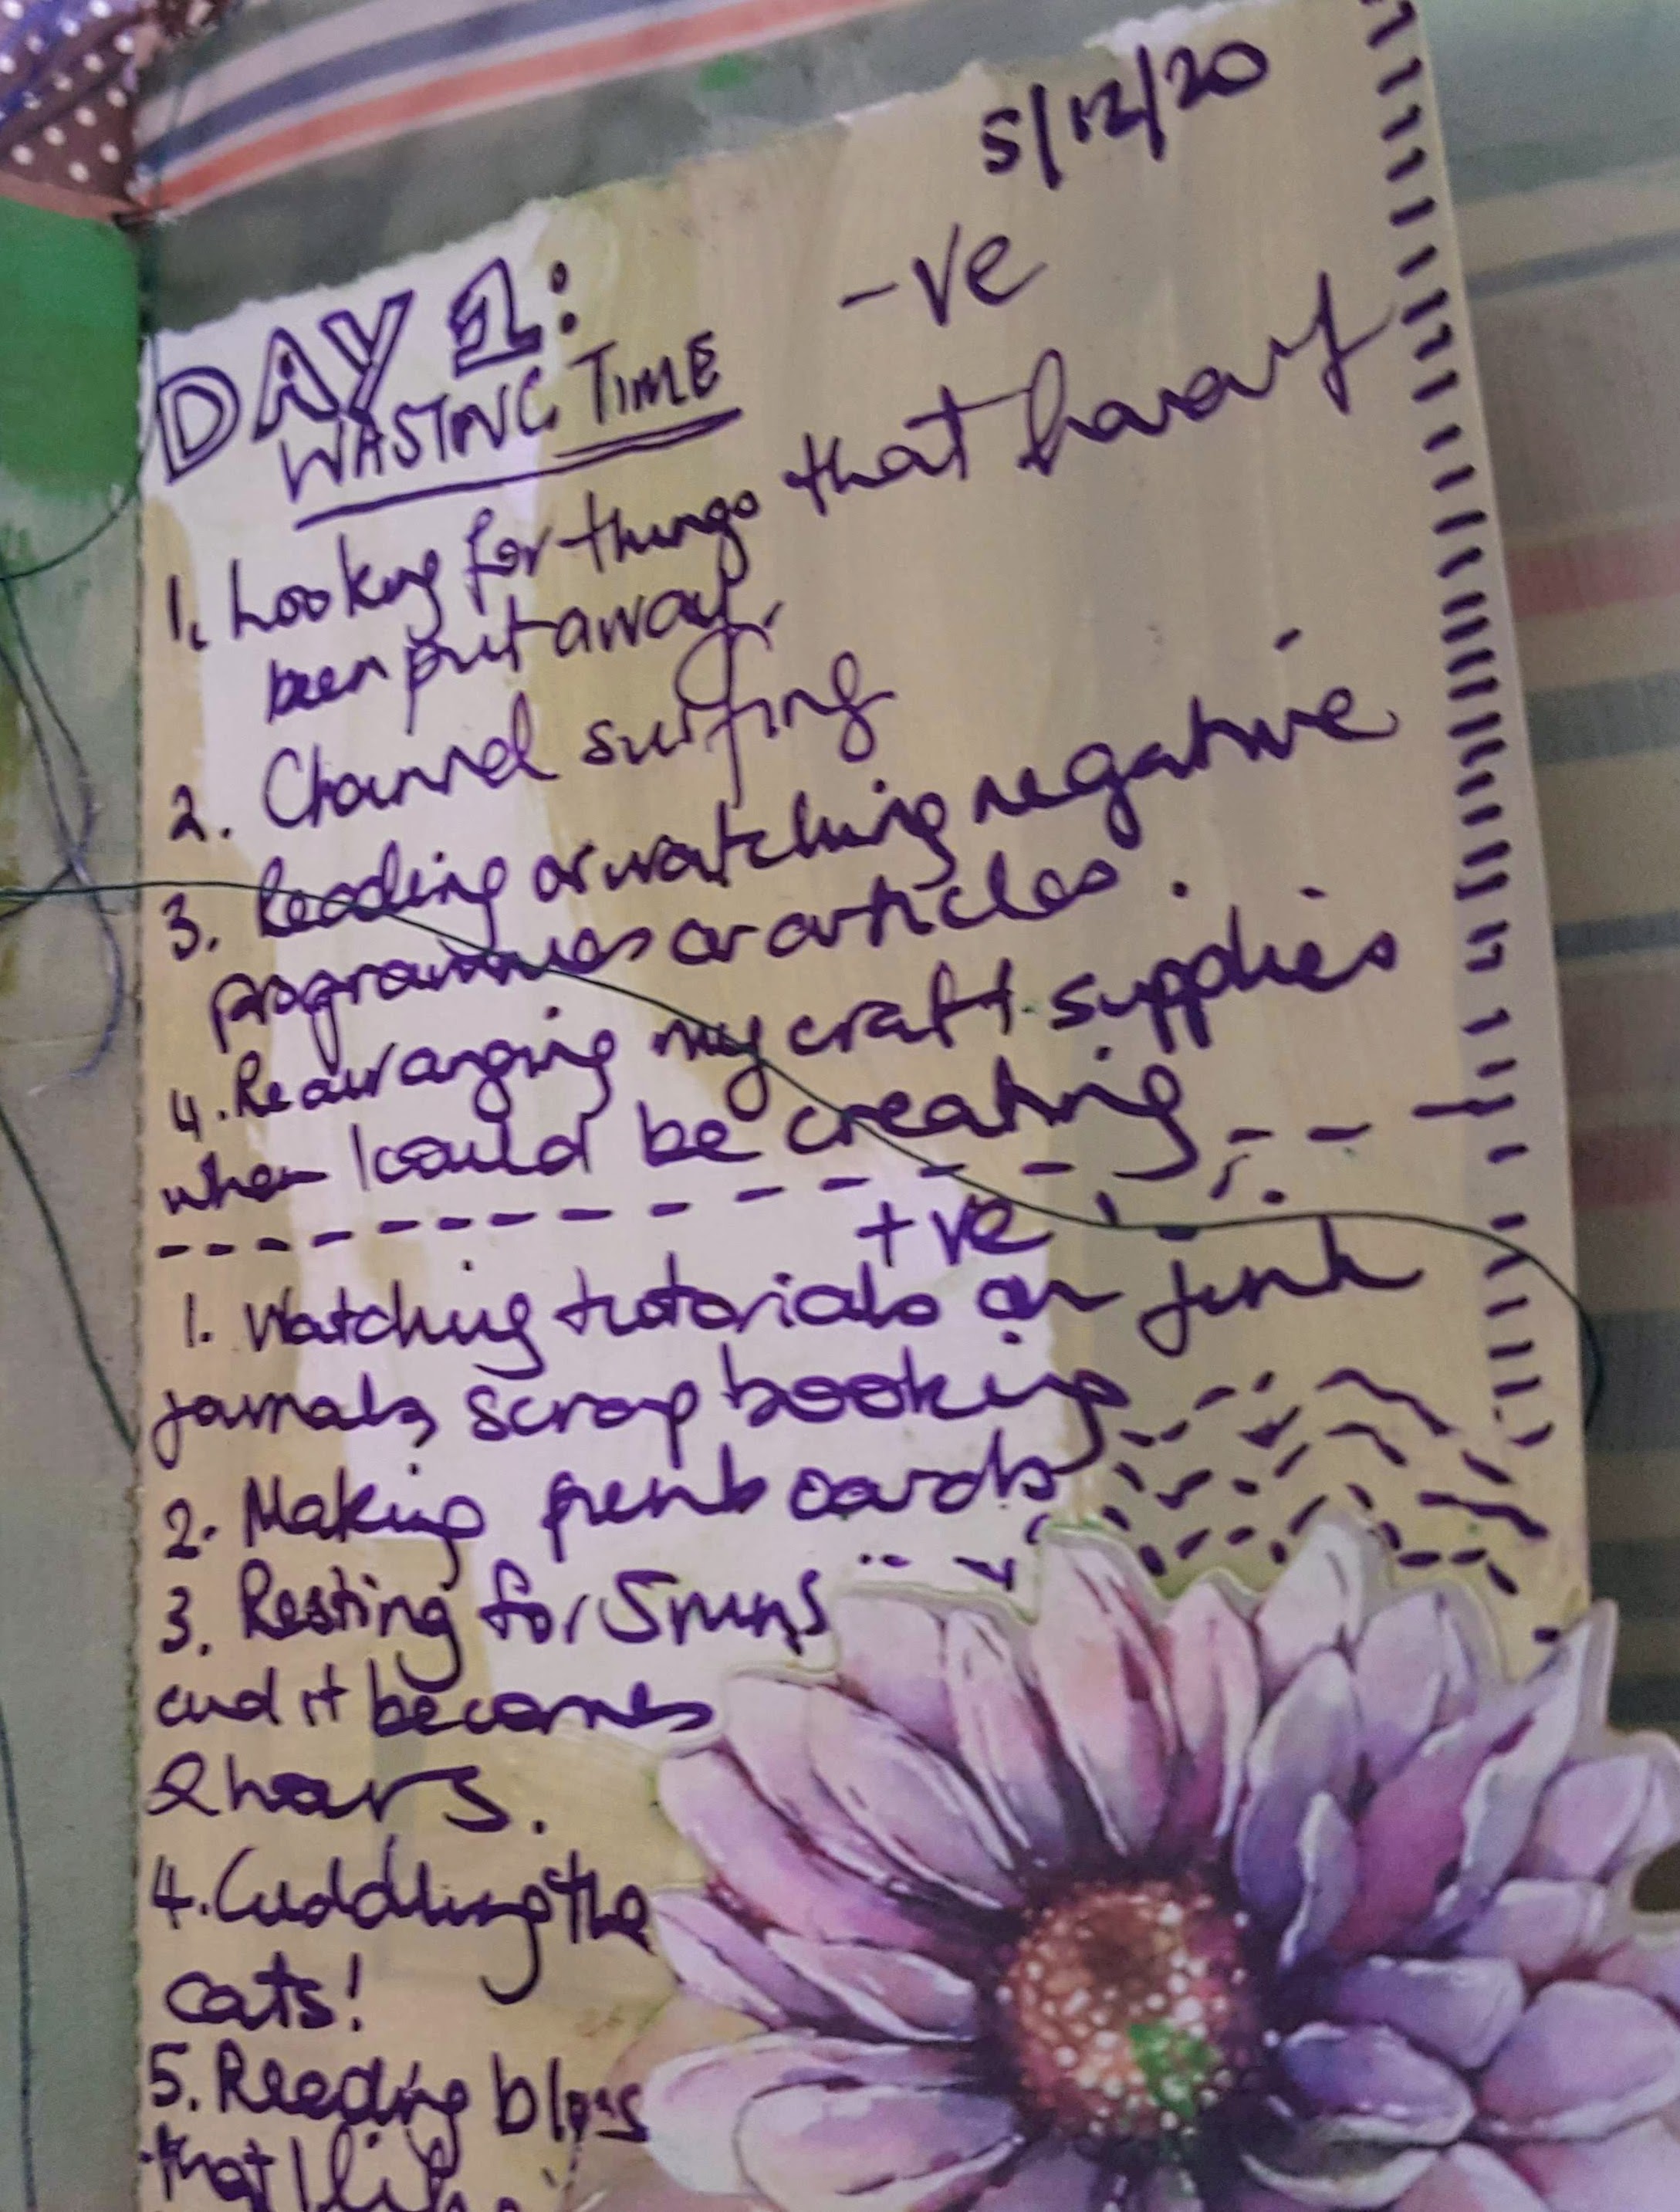 5/12/20
DAY 1:
-ve
WASTING TIME
1. Looking for things that haven't
been put away.
2. Channel surfing
3. Reading or watching negative
programmes or articles.
4. Rearranging my craft supplies
when I could be creating
+ve
1. Watching tutorials on junk
journals, scrap booking
2. Making cards
3. Resting for 5 mins
and it becomes
2 hours.
4. Cuddling the
cats!
5. Reading blogs
that I like